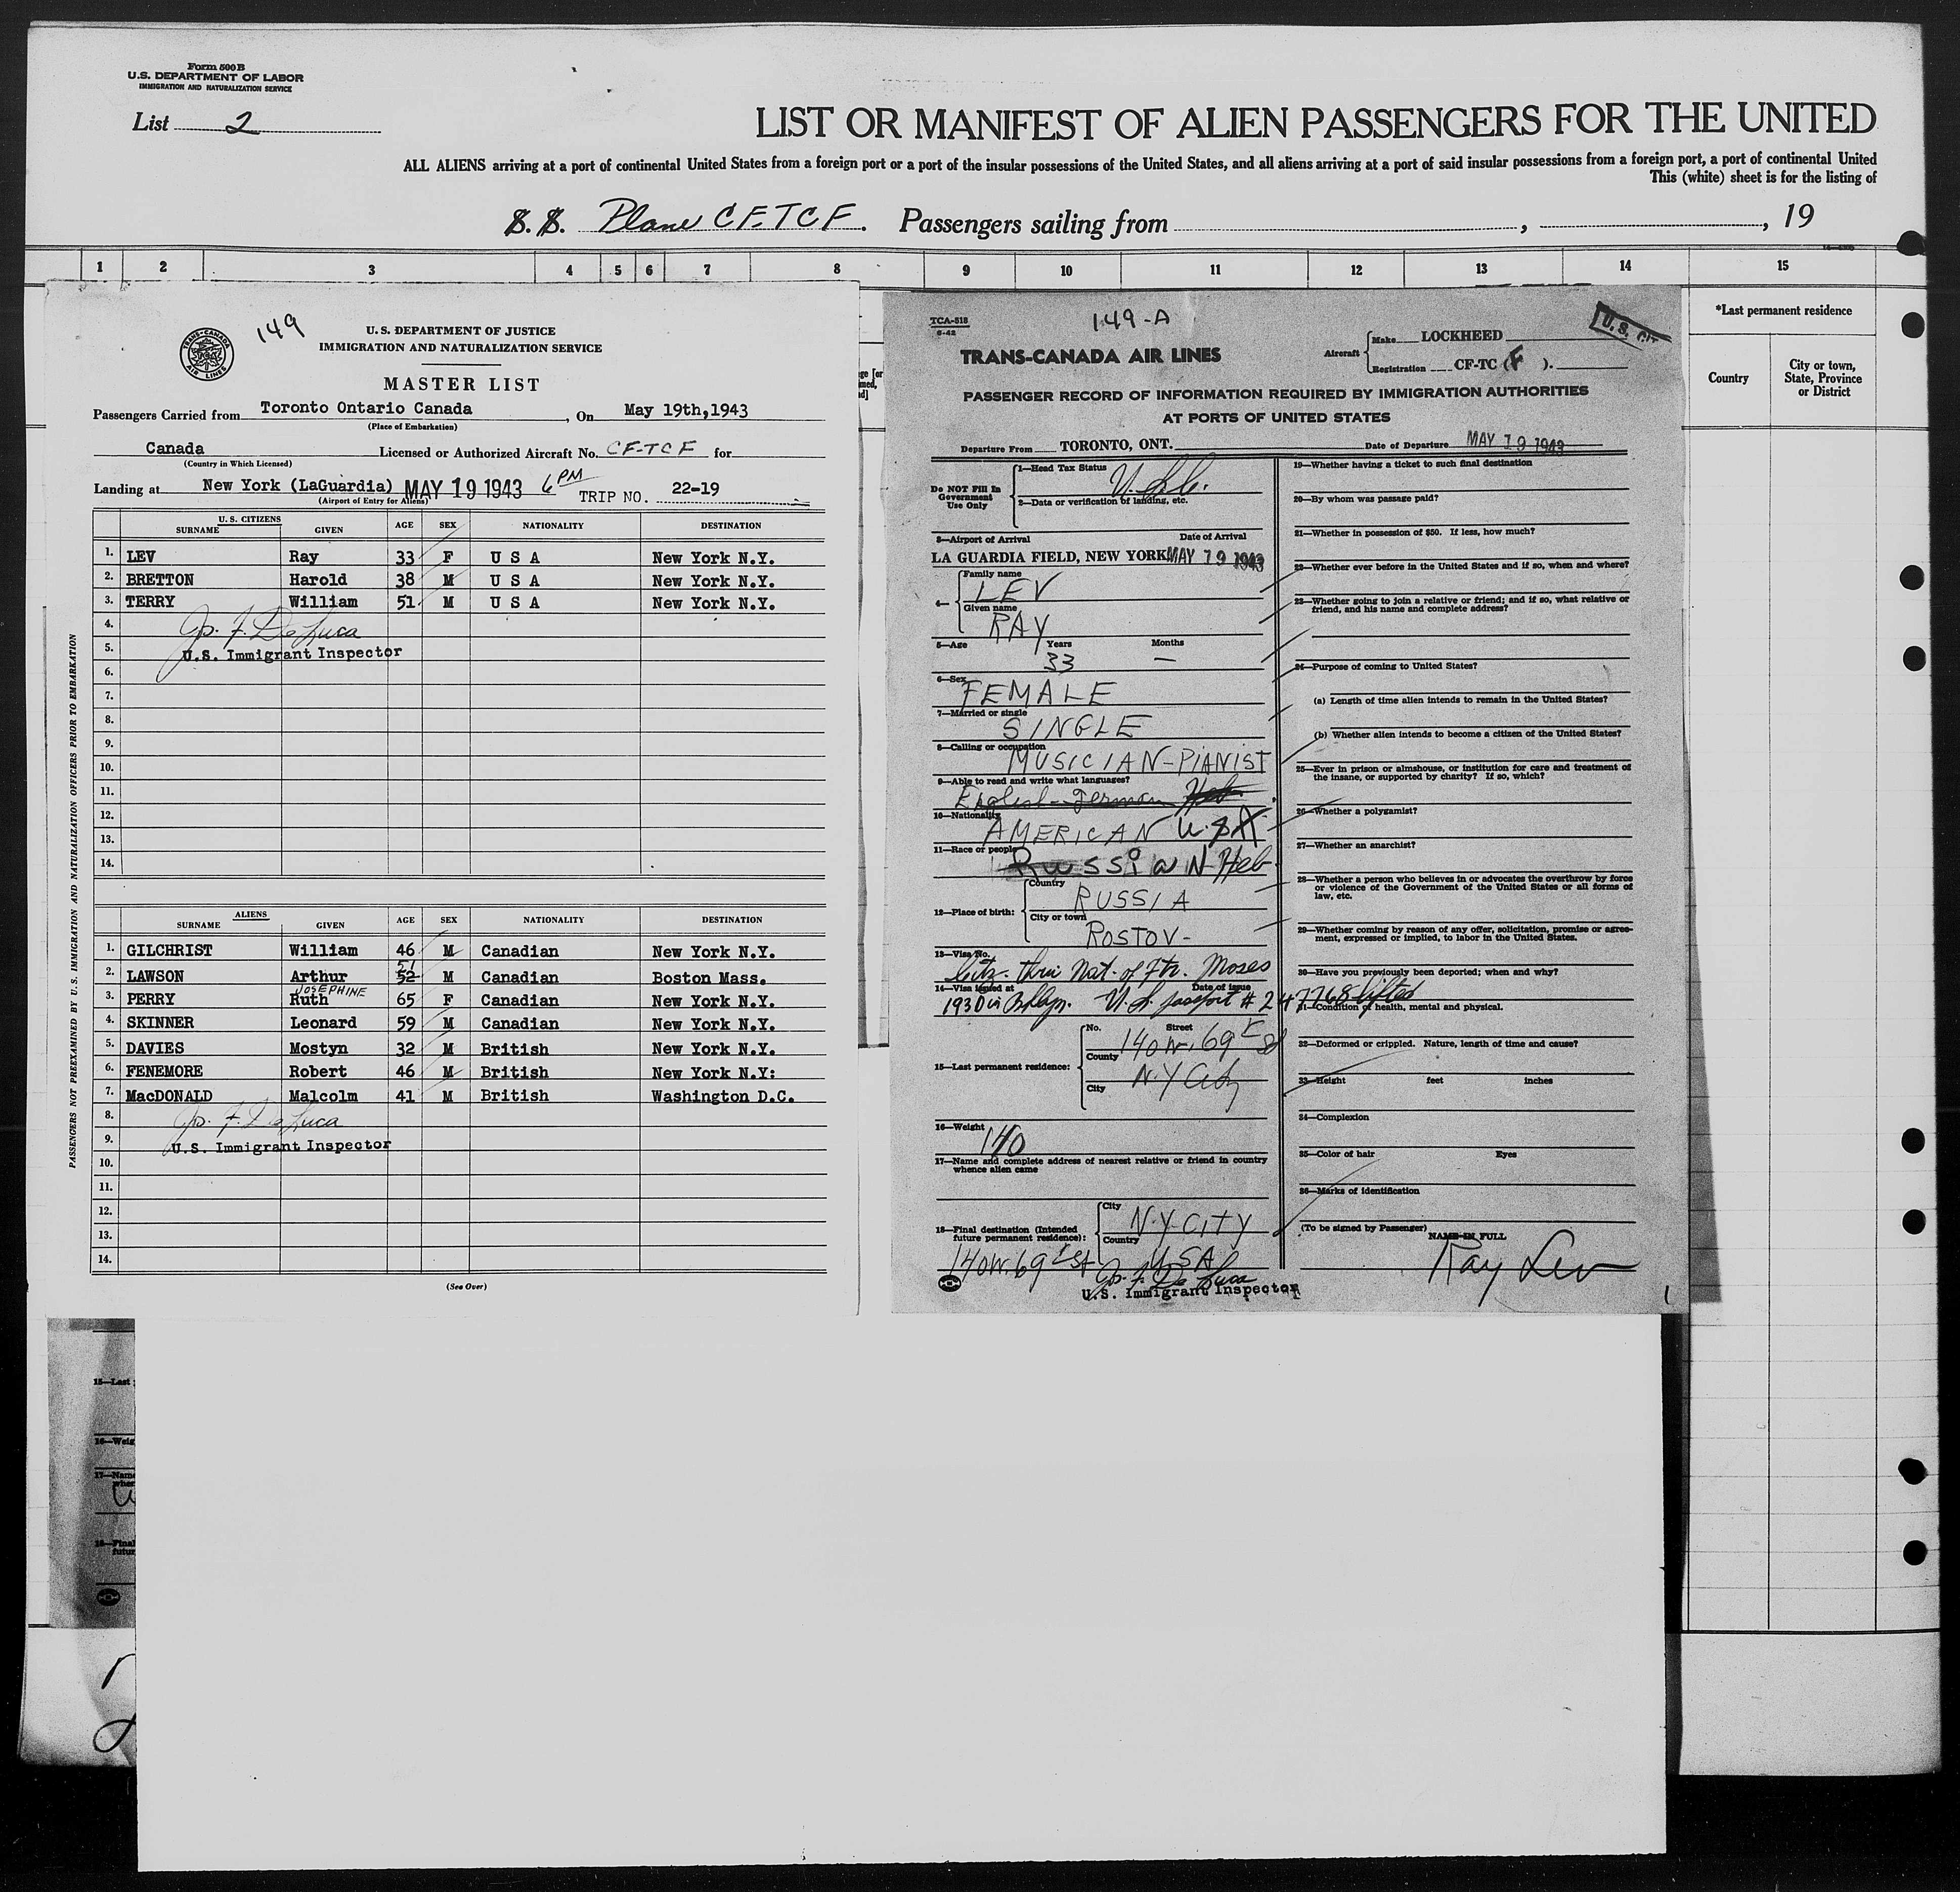 Form 500 B
U.S. DEPARTMENT OF LABOR
IMMIGRATION AND NATURALIZATION SERVICE
List 2
LIST OR MANIFEST OF ALIEN PASSENGERS FOR THE UNITED
ALL ALIENS arriving at a port of continental United States from a foreign port or a port of the insular possessions of the United States, and all aliens arriving at a port of said insular possessions from a foreign port, a port of continental United
This (white) sheet is for the listing of
S.S. Plane CF-TCF. Passengers sailing from , , 19
1 2 3 4 5 6 7 8 9 10 11 12 13 14 15
*Last permanent residence
Country
City or town,
State, Province
or District
TRANS-CANADA AIR LINES
149
U. S. DEPARTMENT OF JUSTICE
IMMIGRATION AND NATURALIZATION SERVICE
MASTER LIST
Passengers Carried from Toronto Ontario Canada, On May 19th,1943
(Place of Embarkation)
Canada Licensed or Authorized Aircraft No. CF-TCF for
(Country in Which Licensed)
Landing at New York (LaGuardia) MAY 19 1943 6 PM TRIP NO. 22-19
(Airport of Entry for Aliens)
U. S. CITIZENS
SURNAME GIVEN AGE SEX NATIONALITY DESTINATION
1. LEV Ray 33 F U S A New York N.Y.
2. BRETTON Harold 38 M U S A New York N.Y.
3. TERRY William 51 M U S A New York N.Y.
4. Jos. F. De Luca
5. U.S. Immigrant Inspector
6.
7.
8.
9.
10.
11.
12.
13.
14.
ALIENS
SURNAME GIVEN AGE SEX NATIONALITY DESTINATION
1. GILCHRIST William 46 M Canadian New York N.Y.
51
2. LAWSON Arthur 52 M Canadian Boston Mass.
JOSEPHINE
3. PERRY Ruth 65 F Canadian New York N.Y.
4. SKINNER Leonard 59 M Canadian New York N.Y.
5. DAVIES Mostyn 32 M British New York N.Y.
6. FENEMORE Robert 46 M British New York N.Y:
7. MacDONALD Malcolm 41 M British Washington D.C.
8. Jos. F. De Luca
9. U.S. Immigrant Inspector
10.
11.
12.
13.
14.
(See Over)
PASSENGERS NOT PREEXAMINED BY U. S. IMMIGRATION AND NATURALIZATION OFFICERS PRIOR TO EMBARKATION
TCA-518
6-42
149-A
U. S. Cit
TRANS-CANADA AIR LINES
Aircraft Make LOCKHEED
Registration CF-TC (F ).
PASSENGER RECORD OF INFORMATION REQUIRED BY IMMIGRATION AUTHORITIES
AT PORTS OF UNITED STATES
Departure From TORONTO, ONT. Date of Departure MAY 19 1943
Do NOT Fill In
Government
Use Only
1—Head Tax Status
2—Data or verification of landing, etc.
3—Airport of Arrival Date of Arrival
LA GUARDIA FIELD, NEW YORK MAY 19 1943
4— Family name
LEV
Given name
RAY
5—Age Years Months
33 —
6—Sex
FEMALE
7—Married or single
SINGLE
8—Calling or occupation
MUSICIAN-PIANIST
9—Able to read and write what languages?
English-German Heb
10—Nationality
AMERICAN U.S.A.
11—Race or people
RussiaN-Heb
12—Place of birth: Country
RUSSIA
City or town
ROSTOV-
13—Visa No.
Citz. thru Nat. of Ftr. Moses
14—Visa issued at Date of issue
1930 in Bklyn. U.S. passport # 247768 lifted
15—Last permanent residence: No. Street
140 W. 69 St
County
N.Y City
City
16—Weight
140
17—Name and complete address of nearest relative or friend in country
whence alien came
18—Final destination (Intended
future permanent residence): City
N.Y-CITY
Country
140 W. 69 St USA
Jos. F. De Luca
U.S. Immigrant Inspector
19—Whether having a ticket to such final destination
20—By whom was passage paid?
21—Whether in possession of $50. If less, how much?
22—Whether ever before in the United States and if so, when and where?
23—Whether going to join a relative or friend; and if so, what relative or
friend, and his name and complete address?
24—Purpose of coming to United States?
(a) Length of time alien intends to remain in the United States?
(b) Whether alien intends to become a citizen of the United States?
25—Ever in prison or almshouse, or institution for care and treatment of
the insane, or supported by charity? If so, which?
26—Whether a polygamist?
27—Whether an anarchist?
28—Whether a person who believes in or advocates the overthrow by force
or violence of the Government of the United States or all forms of
law, etc.
29—Whether coming by reason of any offer, solicitation, promise or agree-
ment, expressed or implied, to labor in the United States.
30—Have you previously been deported; when and why?
31—Condition of health, mental and physical.
32—Deformed or crippled. Nature, length of time and cause?
33—Height feet inches
34—Complexion
35—Color of hair Eyes
36—Marks of identification
(To be signed by Passenger)
NAME IN FULL
Ray Lev
1
15—Last
16—Weig
17—Name
wher
18—Final
futur